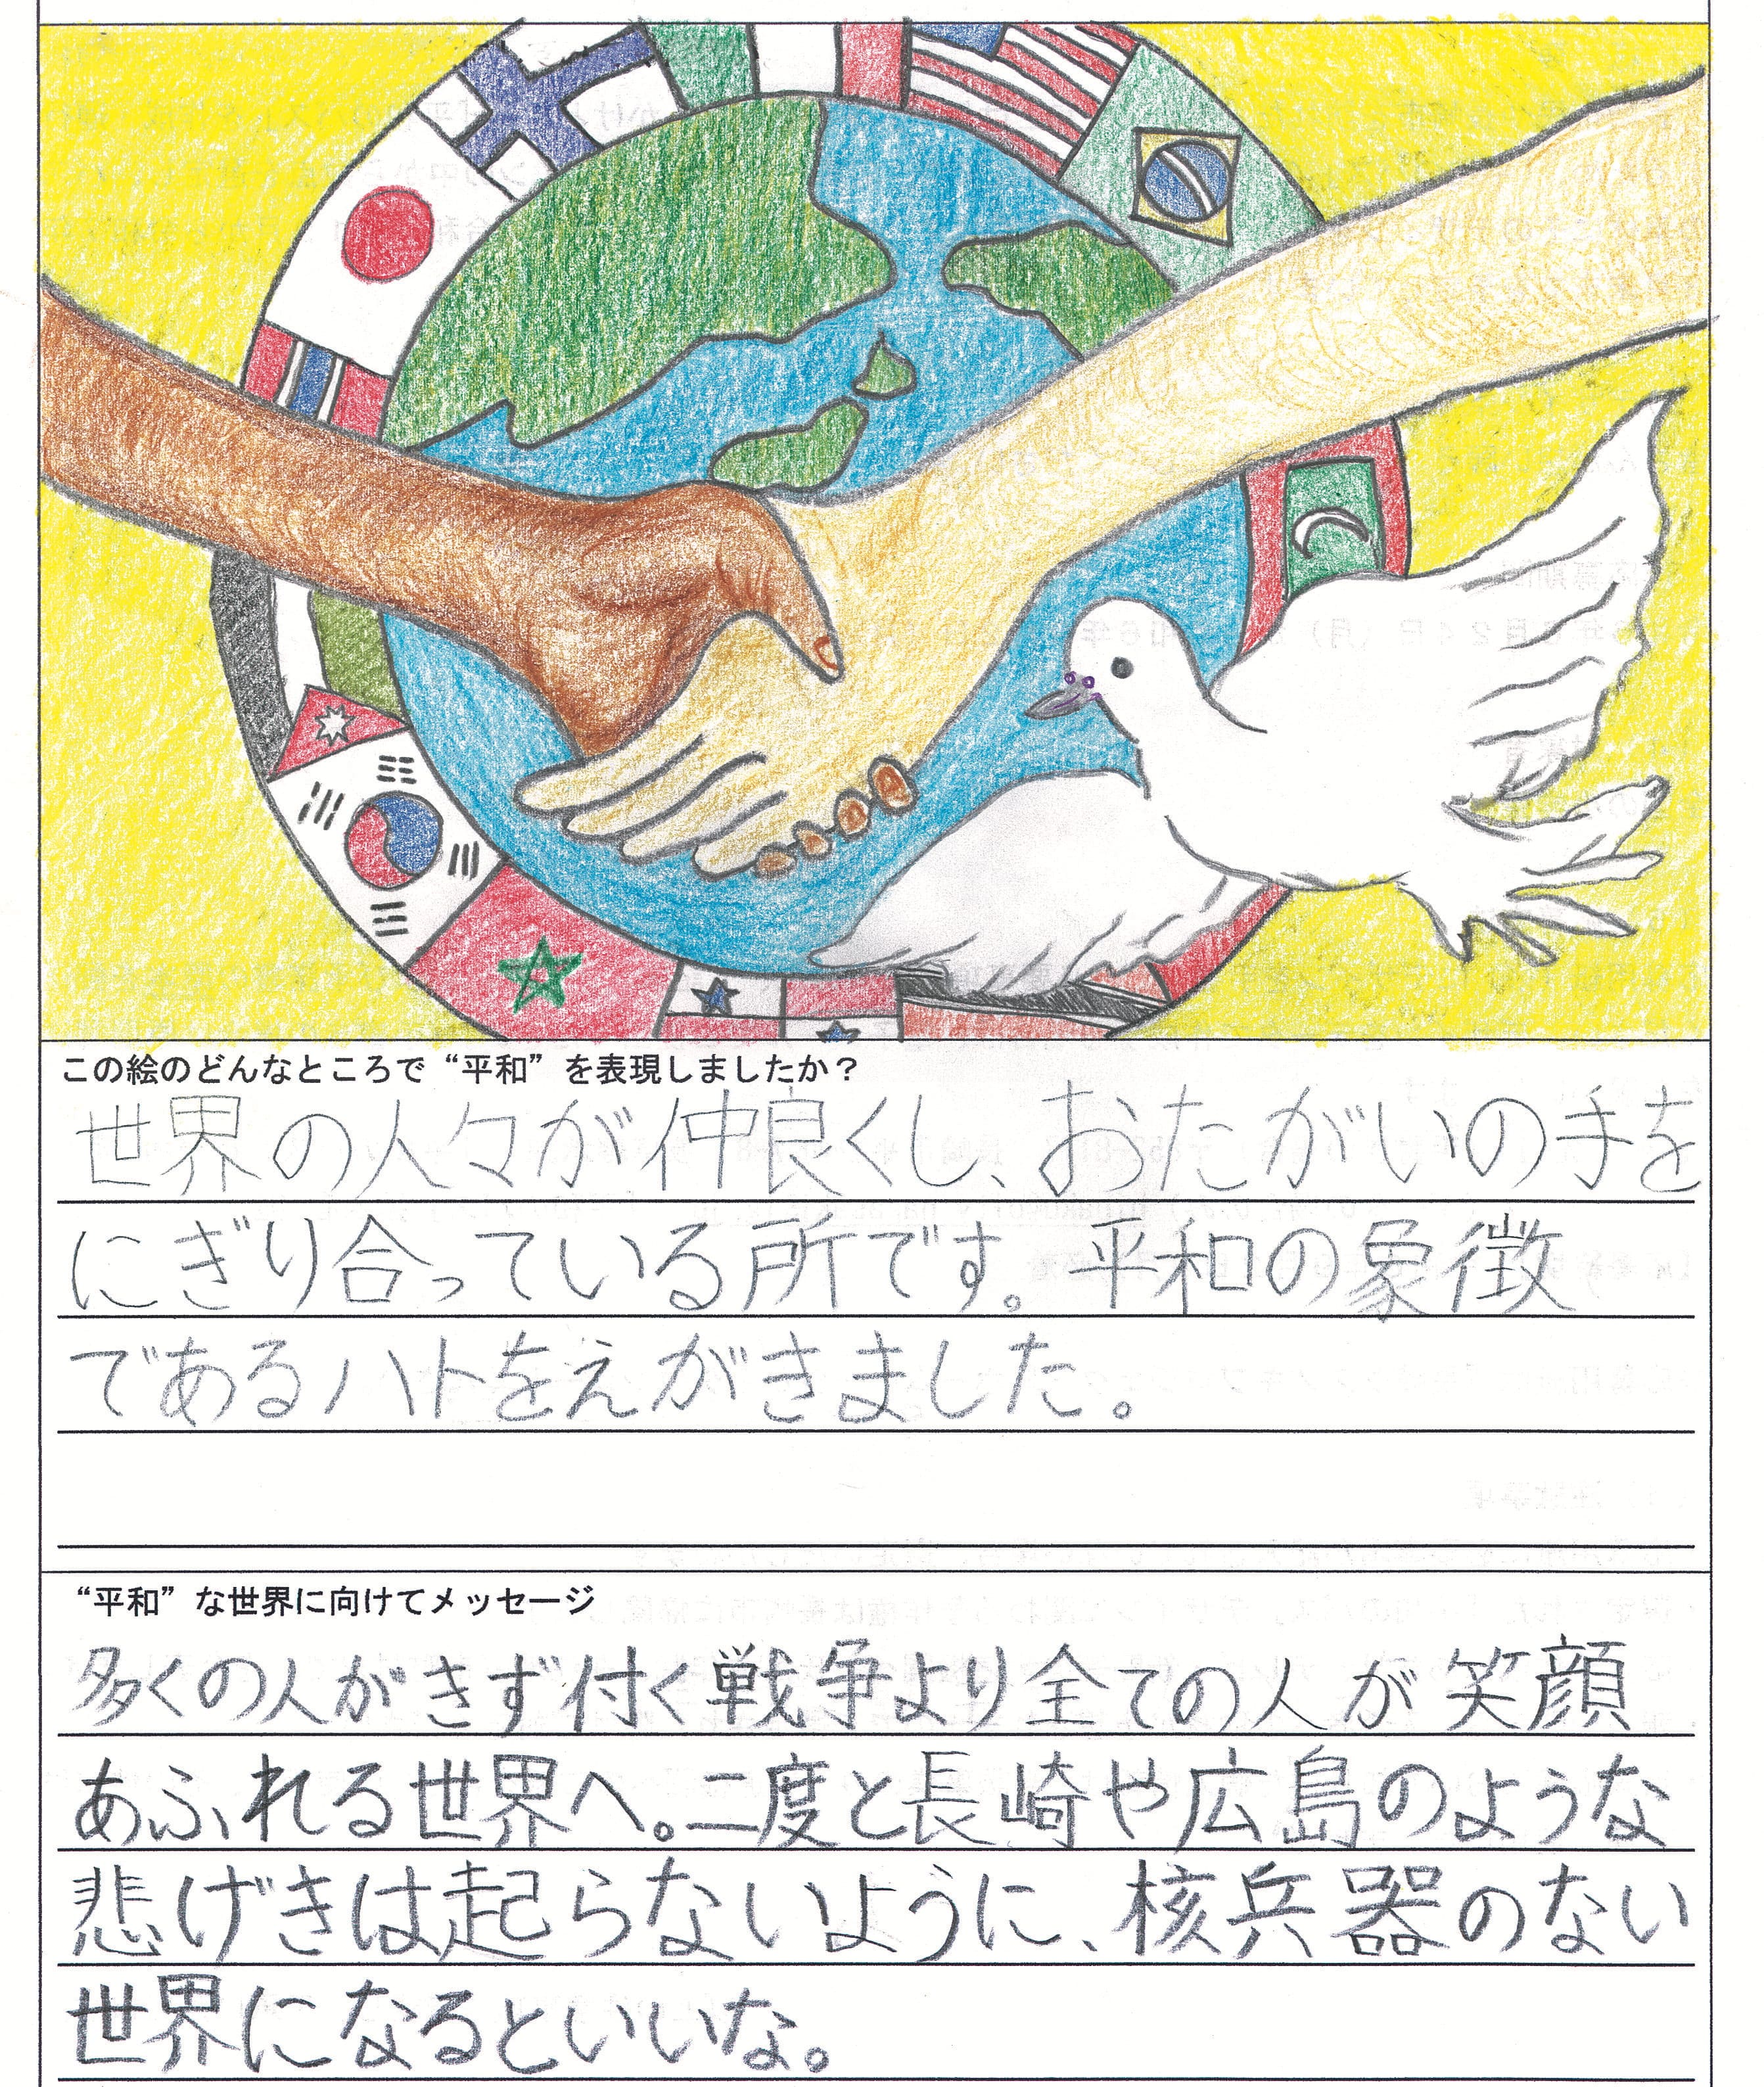 この絵のどんなところで“平和”を表現しましたか？
世界の人々が仲良くし、おたがいの手を
にぎり合っている所です。平和の象徴
であるハトをえがきました。
“平和”な世界に向けてメッセージ
多くの人がきず付く戦争より全ての人が笑顔
あふれる世界へ。二度と長崎や広島のような
悲げきは起らないように、核兵器のない
世界になるといいな。